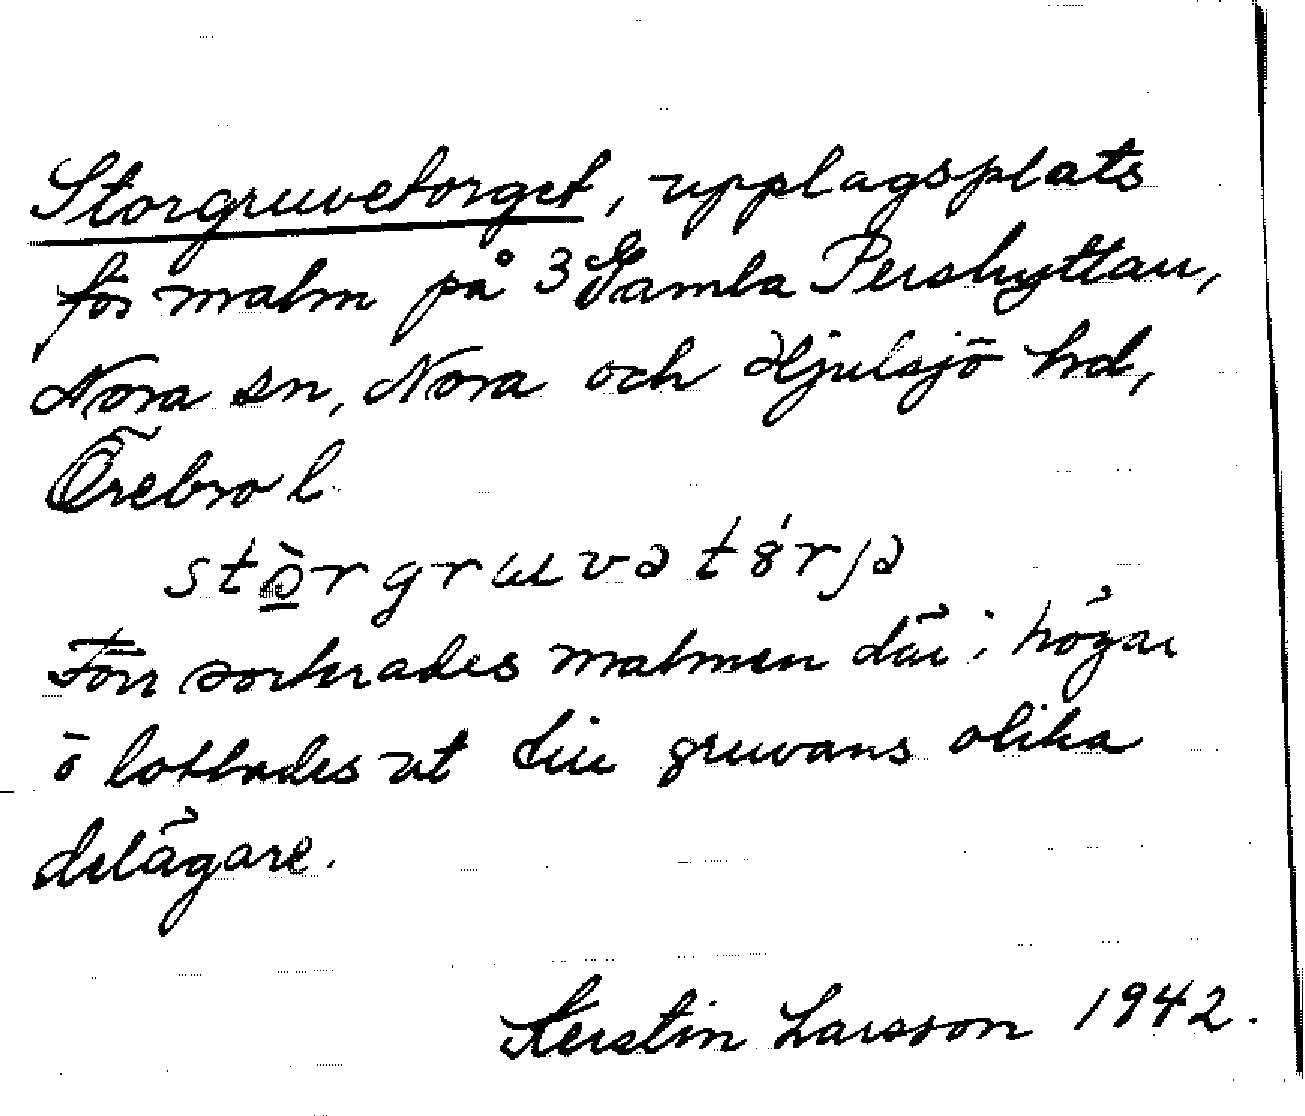 Storgruvetorget, upplagsplats
för malm på 3 Gamla Pershyttan,
Nora sn, Nora och Hjulsjö hrd,
Örebro l.
stò̠rgruvətȣ́rjə
Förr sorterades malmen där i högar
ō lottades ut till gruvans olika
delägare.
Kerstin Larsson 1942.